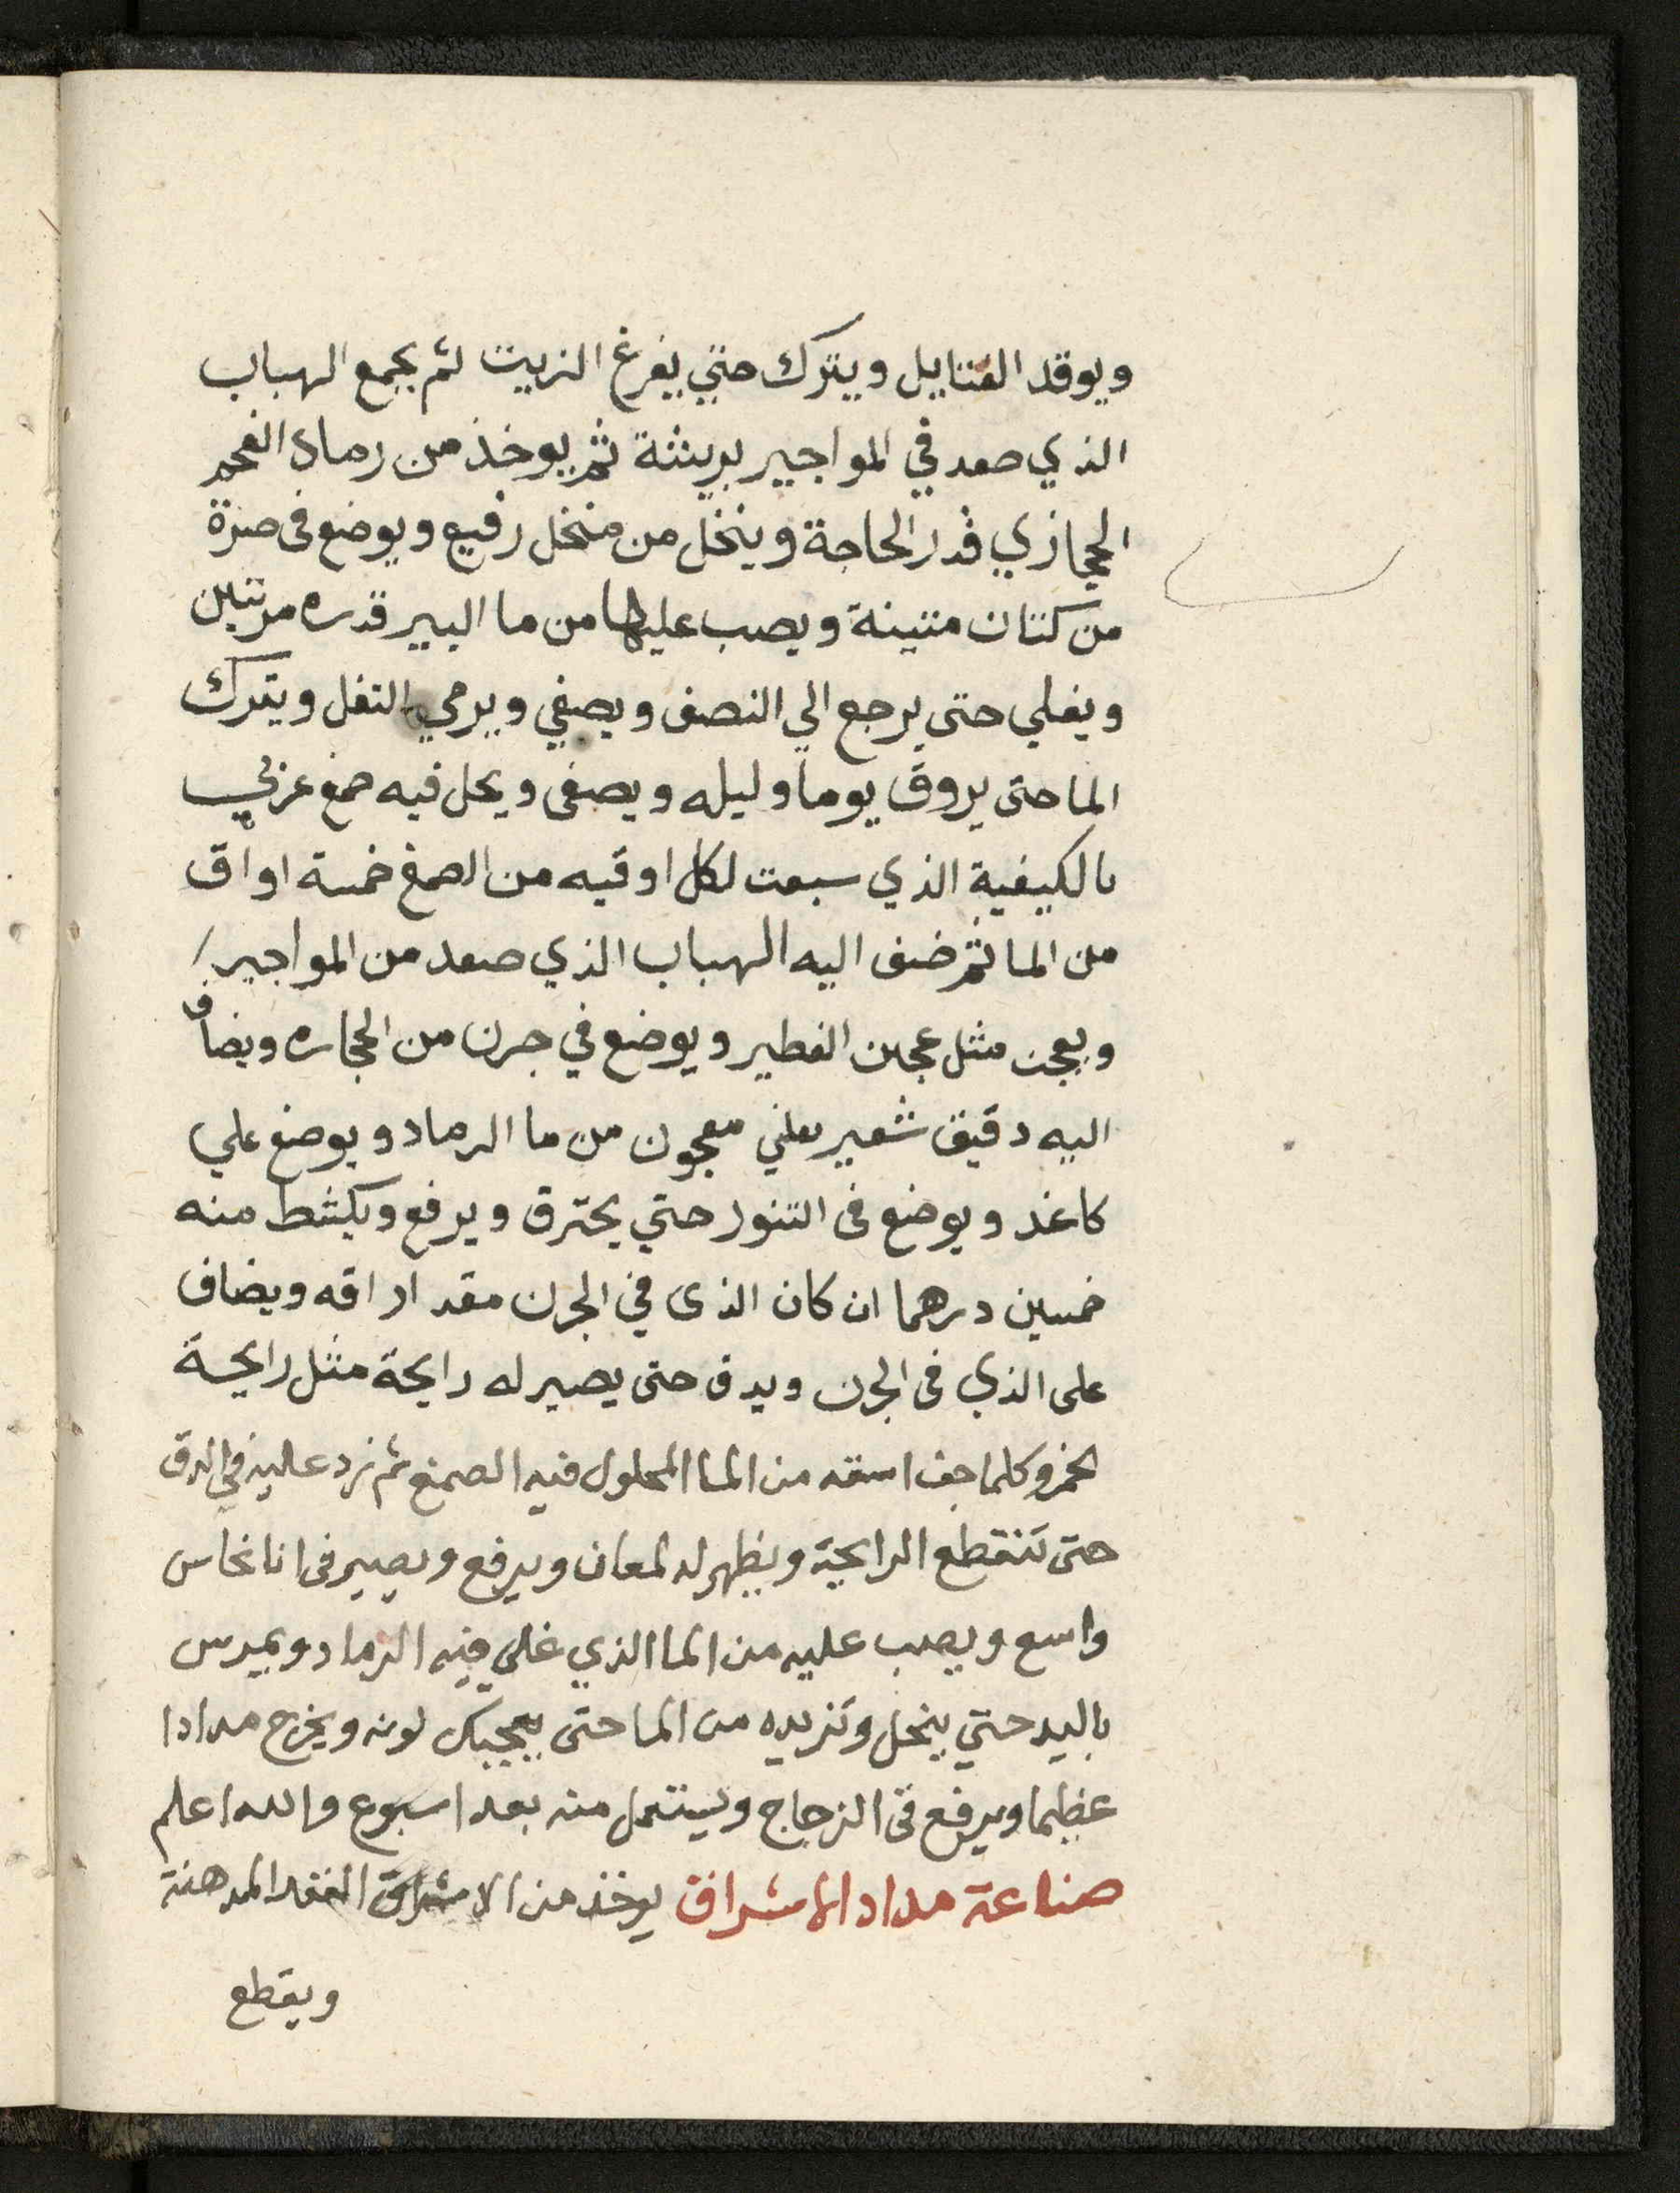 ويوقد الفتايل ويترك حتي يفرغ الزيت ثم يجمع الهباب
الذي صعد في المواجير بريشة ثم يوخذ من رماد الفحم
الحجازي قدر الحاجة وينخل من منخل رفيع ويوضع فى صرة
من كتان متينة ويصب عليها من ما البير قدره مرتين
ويغلي حتى يرجع الي النصف ويصفي ويرمي التفل ويترك
الما حتى يروق يوما وليله ويصفى ويحل فيه صمغ عربي
بالكيفية الذي سبعت لكل اوقيه من الصمغ خمسة اواق
من الما ثم ضف اليه الهباب الذي صعد من المواجير
ويعجن مثل عجين الفطير ويوضع في جرن من الحجاره ويضاف
اليه دقيق شعير يعني معجون من ما الرماد ويوضع علي
كاغد ويوضع فى التنور حتي يحترق ويرفع ويكشط منه
خمسين درهما ان كان الذى في الجرن مقدار اقه ويضاف
على الذي فى الجرن ويدق حتى يصير له رايحة مثل رايحة
الخمر وكلما جف اسقه من الما المحلول فيه الصمغ ثم نزد عليه في الدق
حتى تنقطع الرايحة ويظهر له لمعان ويرفع ويصير فى انا نحاس
واسع ويصب عليه من الما الذي غلي فيه الرماد ويمرس
باليد حتي ينحل وتزيده من الما حتى يعجبك لونه ويخرج مدادا
عظيما ويرفع فى الزجاج ويستعمل منه بعد اسبوع والله اعلم
صناعة مداد الامشراق يوخذ من الامشراق العقد المدهنة
ويقطع